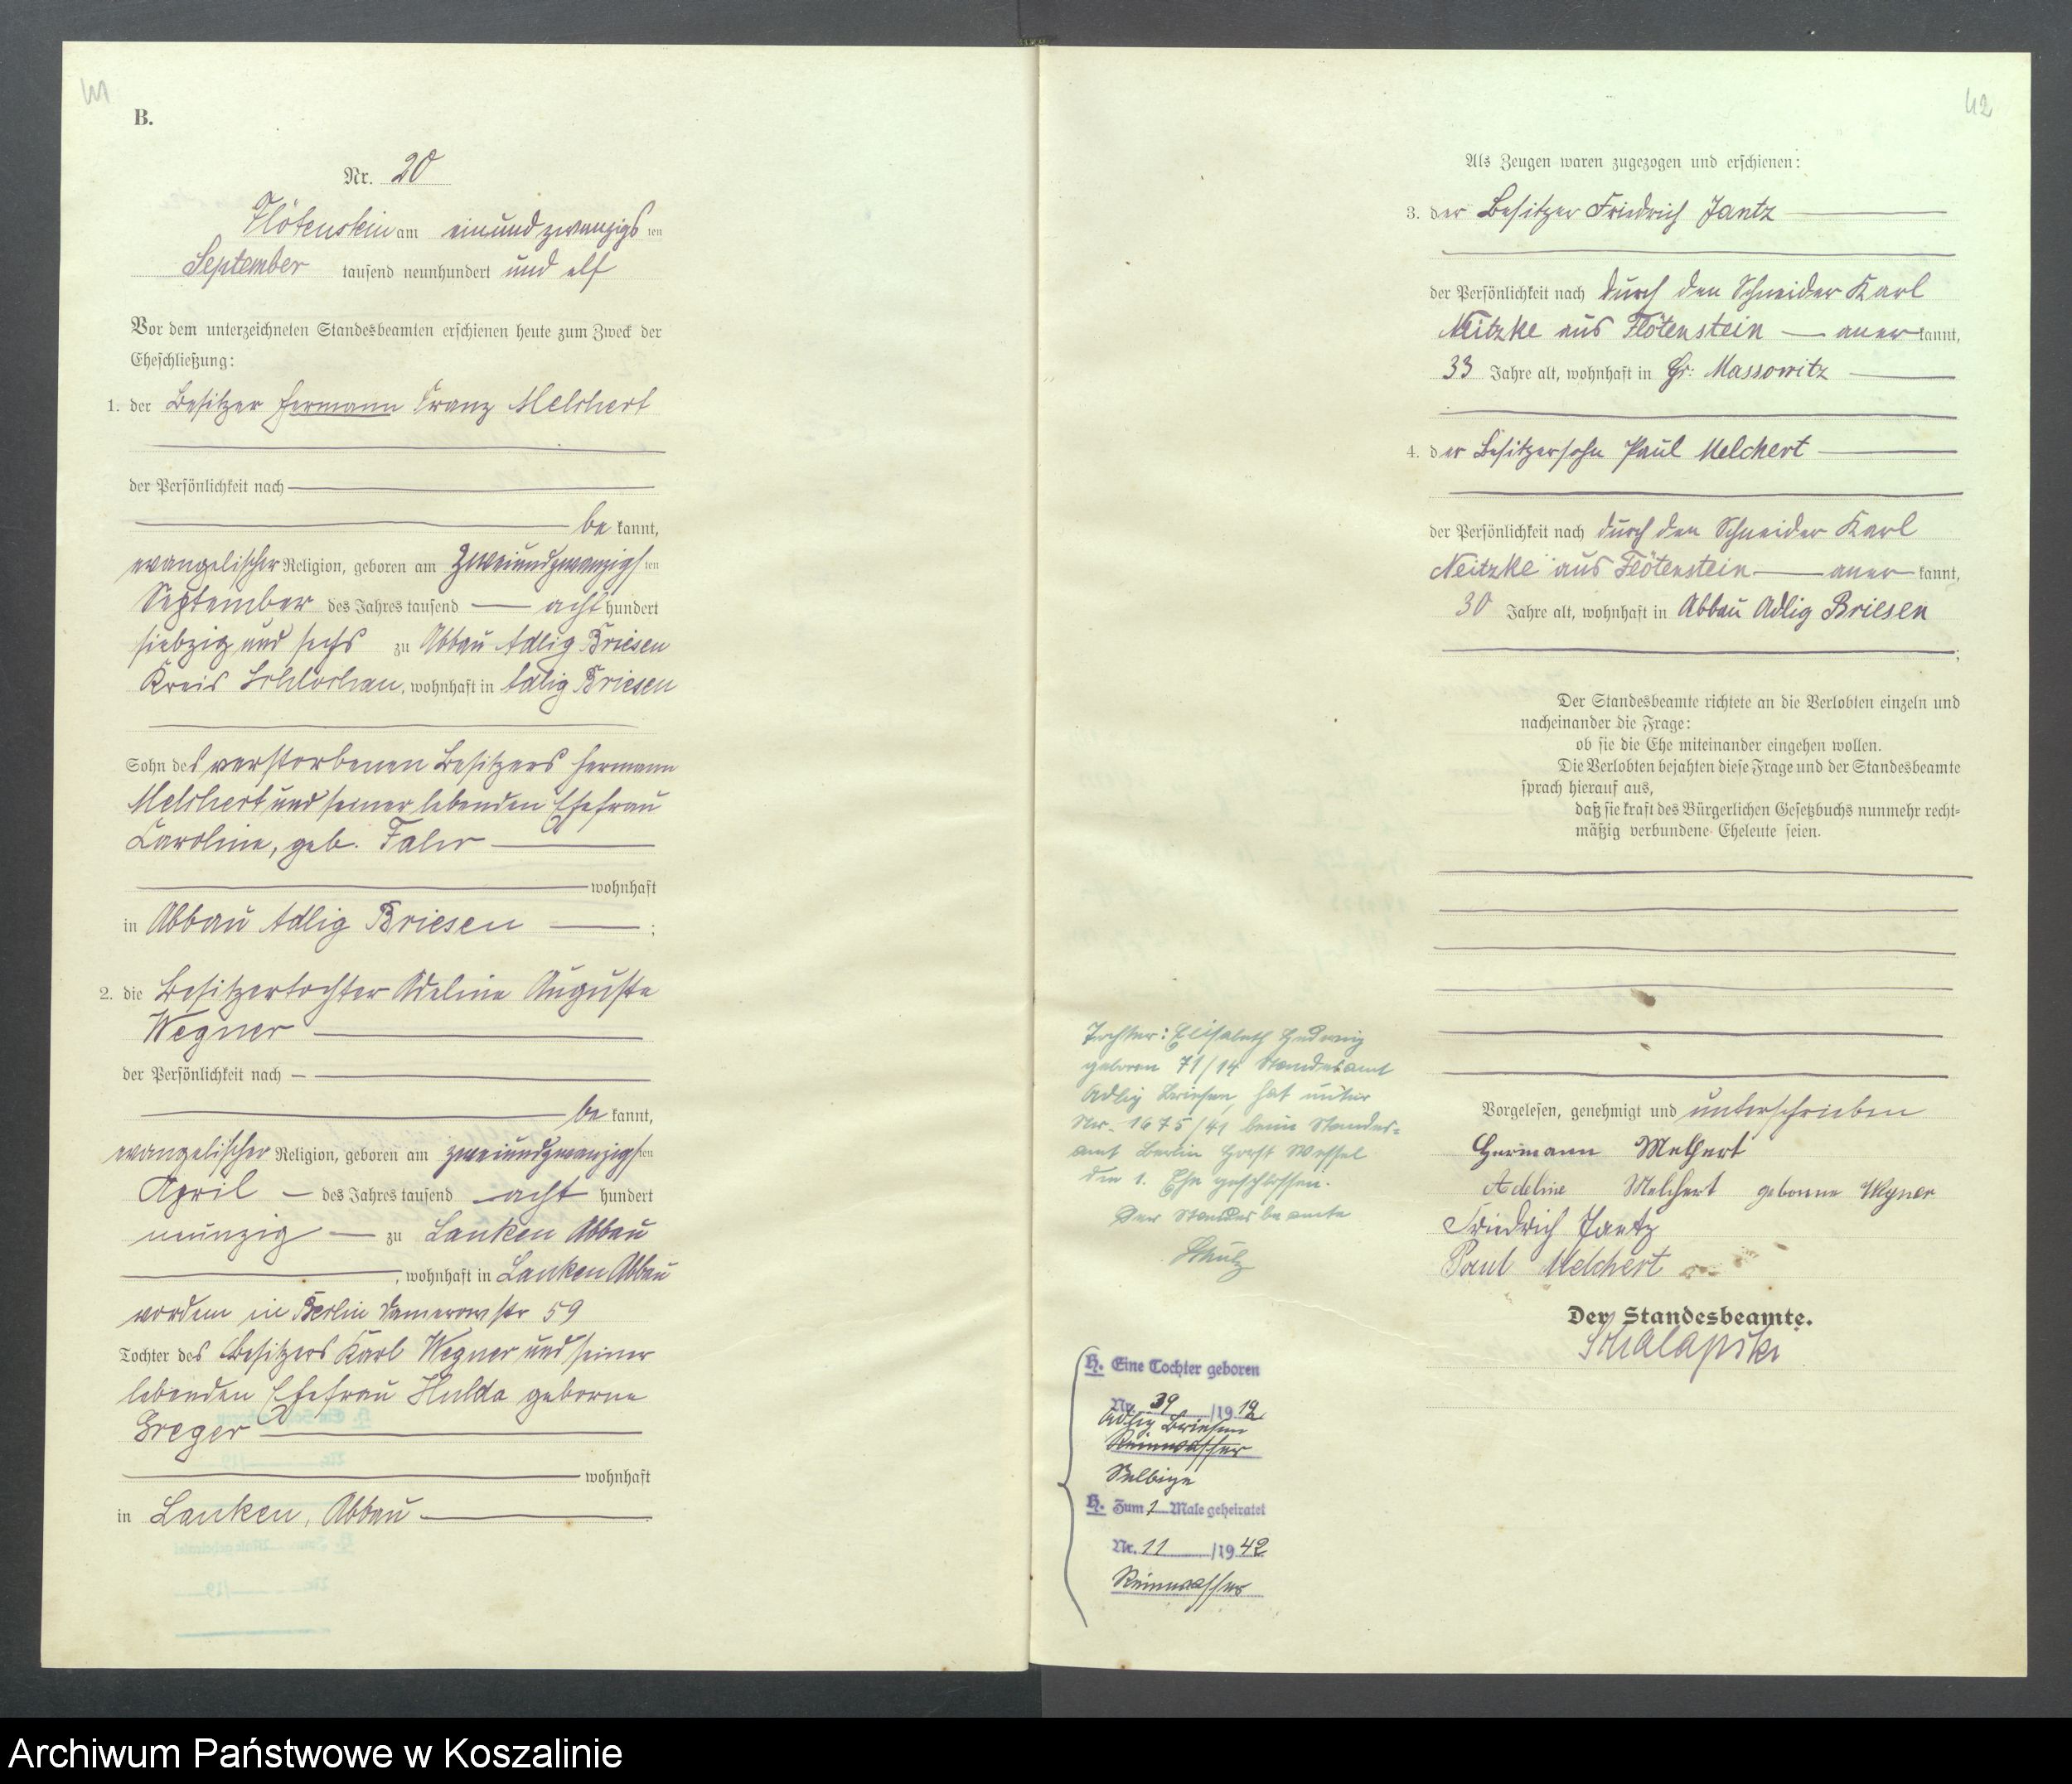 41
B.
Nr. 20
Flötenstein am einundzwanzigsten
September tausend neunhundert und elf
Vor dem unterzeichneten Standesbeamten erschienen heute zum Zweck der
Eheschließung:
1. der Besitzer Hermann Franz Melchert
der Persönlichkeit nach
be kannt,
evangelischer Religion, geboren am zweiundzwanzigsten
September des Jahres tausend acht hundert
siebzig und sechs zu Abbau Adlig Briesen
Kreis Schlochau, wohnhaft in Adlig Briesen
Sohn des verstorbenen Besitzers Hermann
Melchert und seiner lebenden Ehefrau
Caroline, geb.
wohnhaft
in Abbau Adlig Briesen ;
2. die Besitzertochter Adeline Auguste
Wegner
der Persönlichkeit nach
be kannt,
evangelischer Religion, geboren am zweiundzwanzigsten
April des Jahres tausend acht hundert
neunzig zu Lanken Abbau
, wohnhaft in Lanken Abbau
vordem in Berlin Damerowstr 59
Tochter des Besitzers Karl Wegner und seiner
lebenden Ehefrau Hulda geborne
Greger
wohnhaft
in Lanken, Abbau
42
Als Zeugen waren zugezogen und erschienen:
3. der Besitzer Friedrich Jantz
der Persönlichkeit nach durch den Schneider Karl
Neitzke aus Flötenstein aner kannt,
33 Jahre alt, wohnhaft in Gr: Massowitz
4. der Besitzersohn Paul Melchert
der Persönlichkeit nach durch den Schneider Karl
Neitzke aus Flötenstein aner kannt,
30 Jahre alt, wohnhaft in Abbau Adlig Briesen
;
Der Standesbeamte richtete an die Verlobten einzeln und
nacheinander die Frage:
ob sie die Ehe miteinander eingehen wollen.
Die Verlobten bejahten diese Frage und der Standesbeamte
sprach hierauf aus,
daß sie kraft des Bürgerlichen Gesetzbuchs nunmehr recht-
mäßig verbundene Eheleute seien.
Vorgelesen, genehmigt und unterschrieben
Hermann Melchert
Adeline Melchert geborne Wegner
Friedrich Jantz
Paul Melchert
Der Standesbeamte.
Tochter: Elisabeth Hedwig
geboren 71/14 Standesamt
Adlig Briesen, hat unter
Nr. 1675/41 beim Standes-
amt Berlin Horst Wessel
die 1. Ehe geschlossen.
Der Standesbeamte
Schulz
H. Eine Tochter geboren
Nr. 39 /1912
Adlig Briesen
Reinwasser
Selbige
H. Zum 1 Male geheiratet
Nr. 11 /1942
Reinwasser
Archiwum Państwowe w Koszalinie